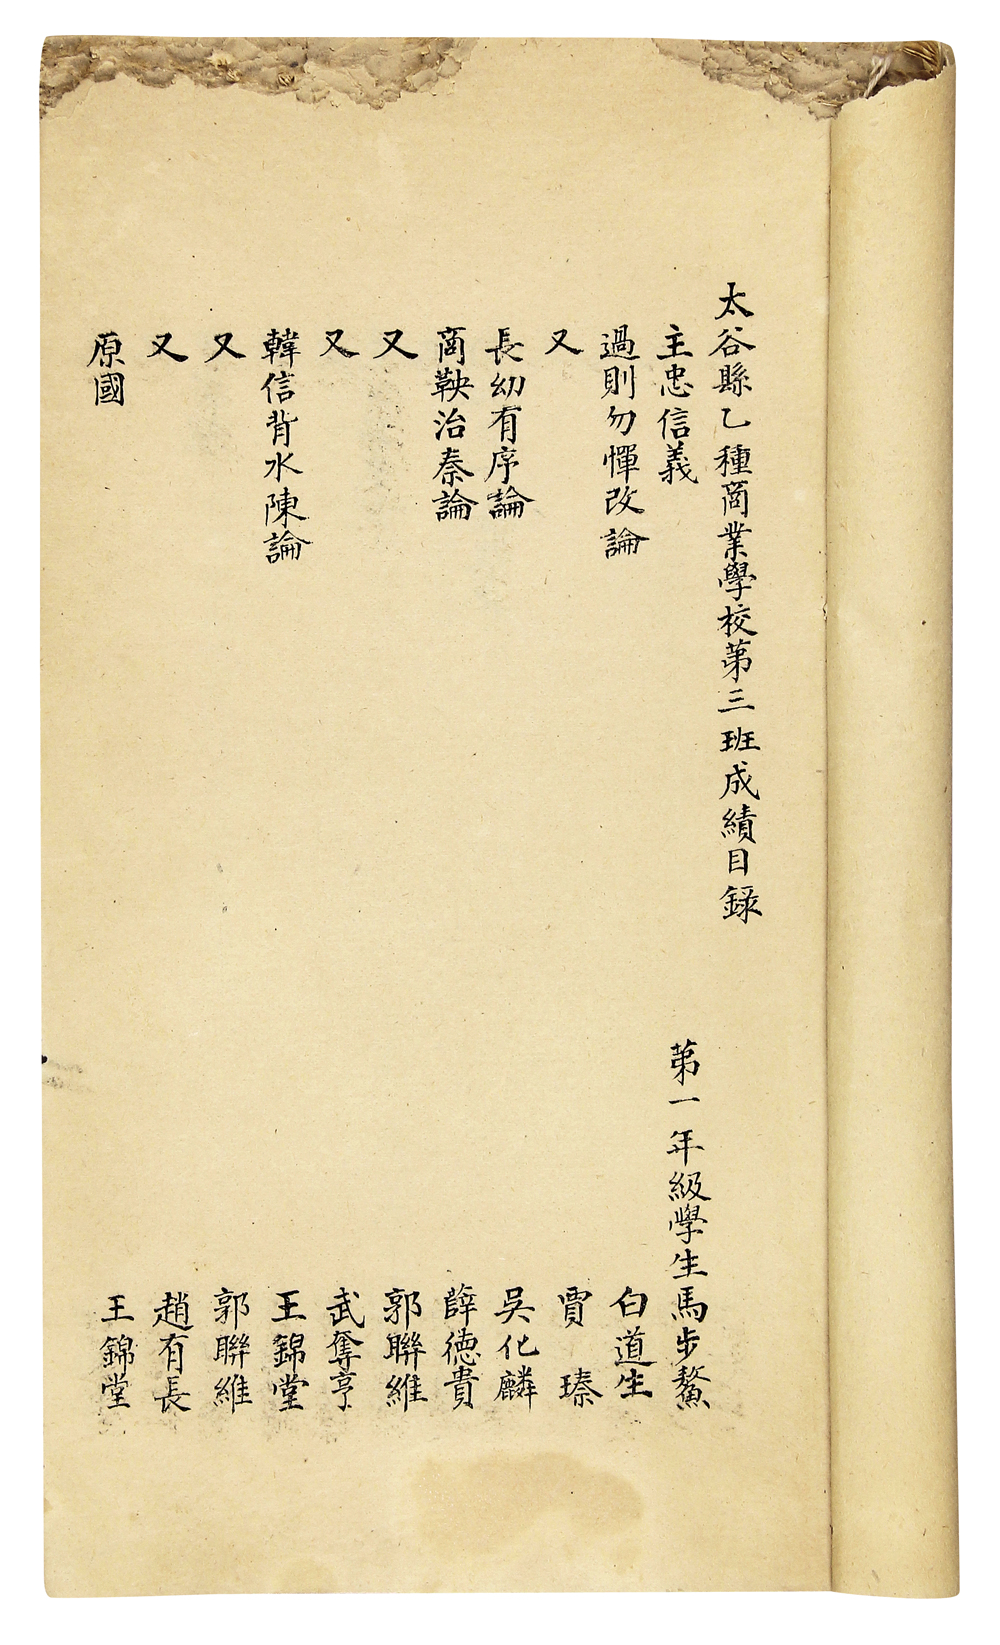 太谷縣乙種商業學校第三班成績目錄
主忠信義 第一年級學生馬步鰲
過則勿憚改論 白道生
又 賈瑧
長幼有序論 吳化麟
商鞅治秦論 薛德貴
又 郭聯維
又 武奪亨
韓信背水陳論 王錦堂
又 郭聯維
又 趙有長
原國 王錦堂